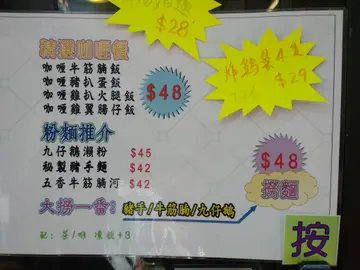 $28
精選咖喱餐
咖喱牛筋腩飯
咖喱豬扒蛋飯
咖喱雞扒火腿飯
咖喱雞翼腸仔飯
$48
炸鷄翼4隻
$29
粉麵推介
九仔鵝瀨粉 $45
秘製豬手麵 $42
五香牛筋腩河 $42
$48
撈麵
大撈一番: 豬手/牛筋腩/九仔鵝
配: 茶/啡 凍飲+3
按